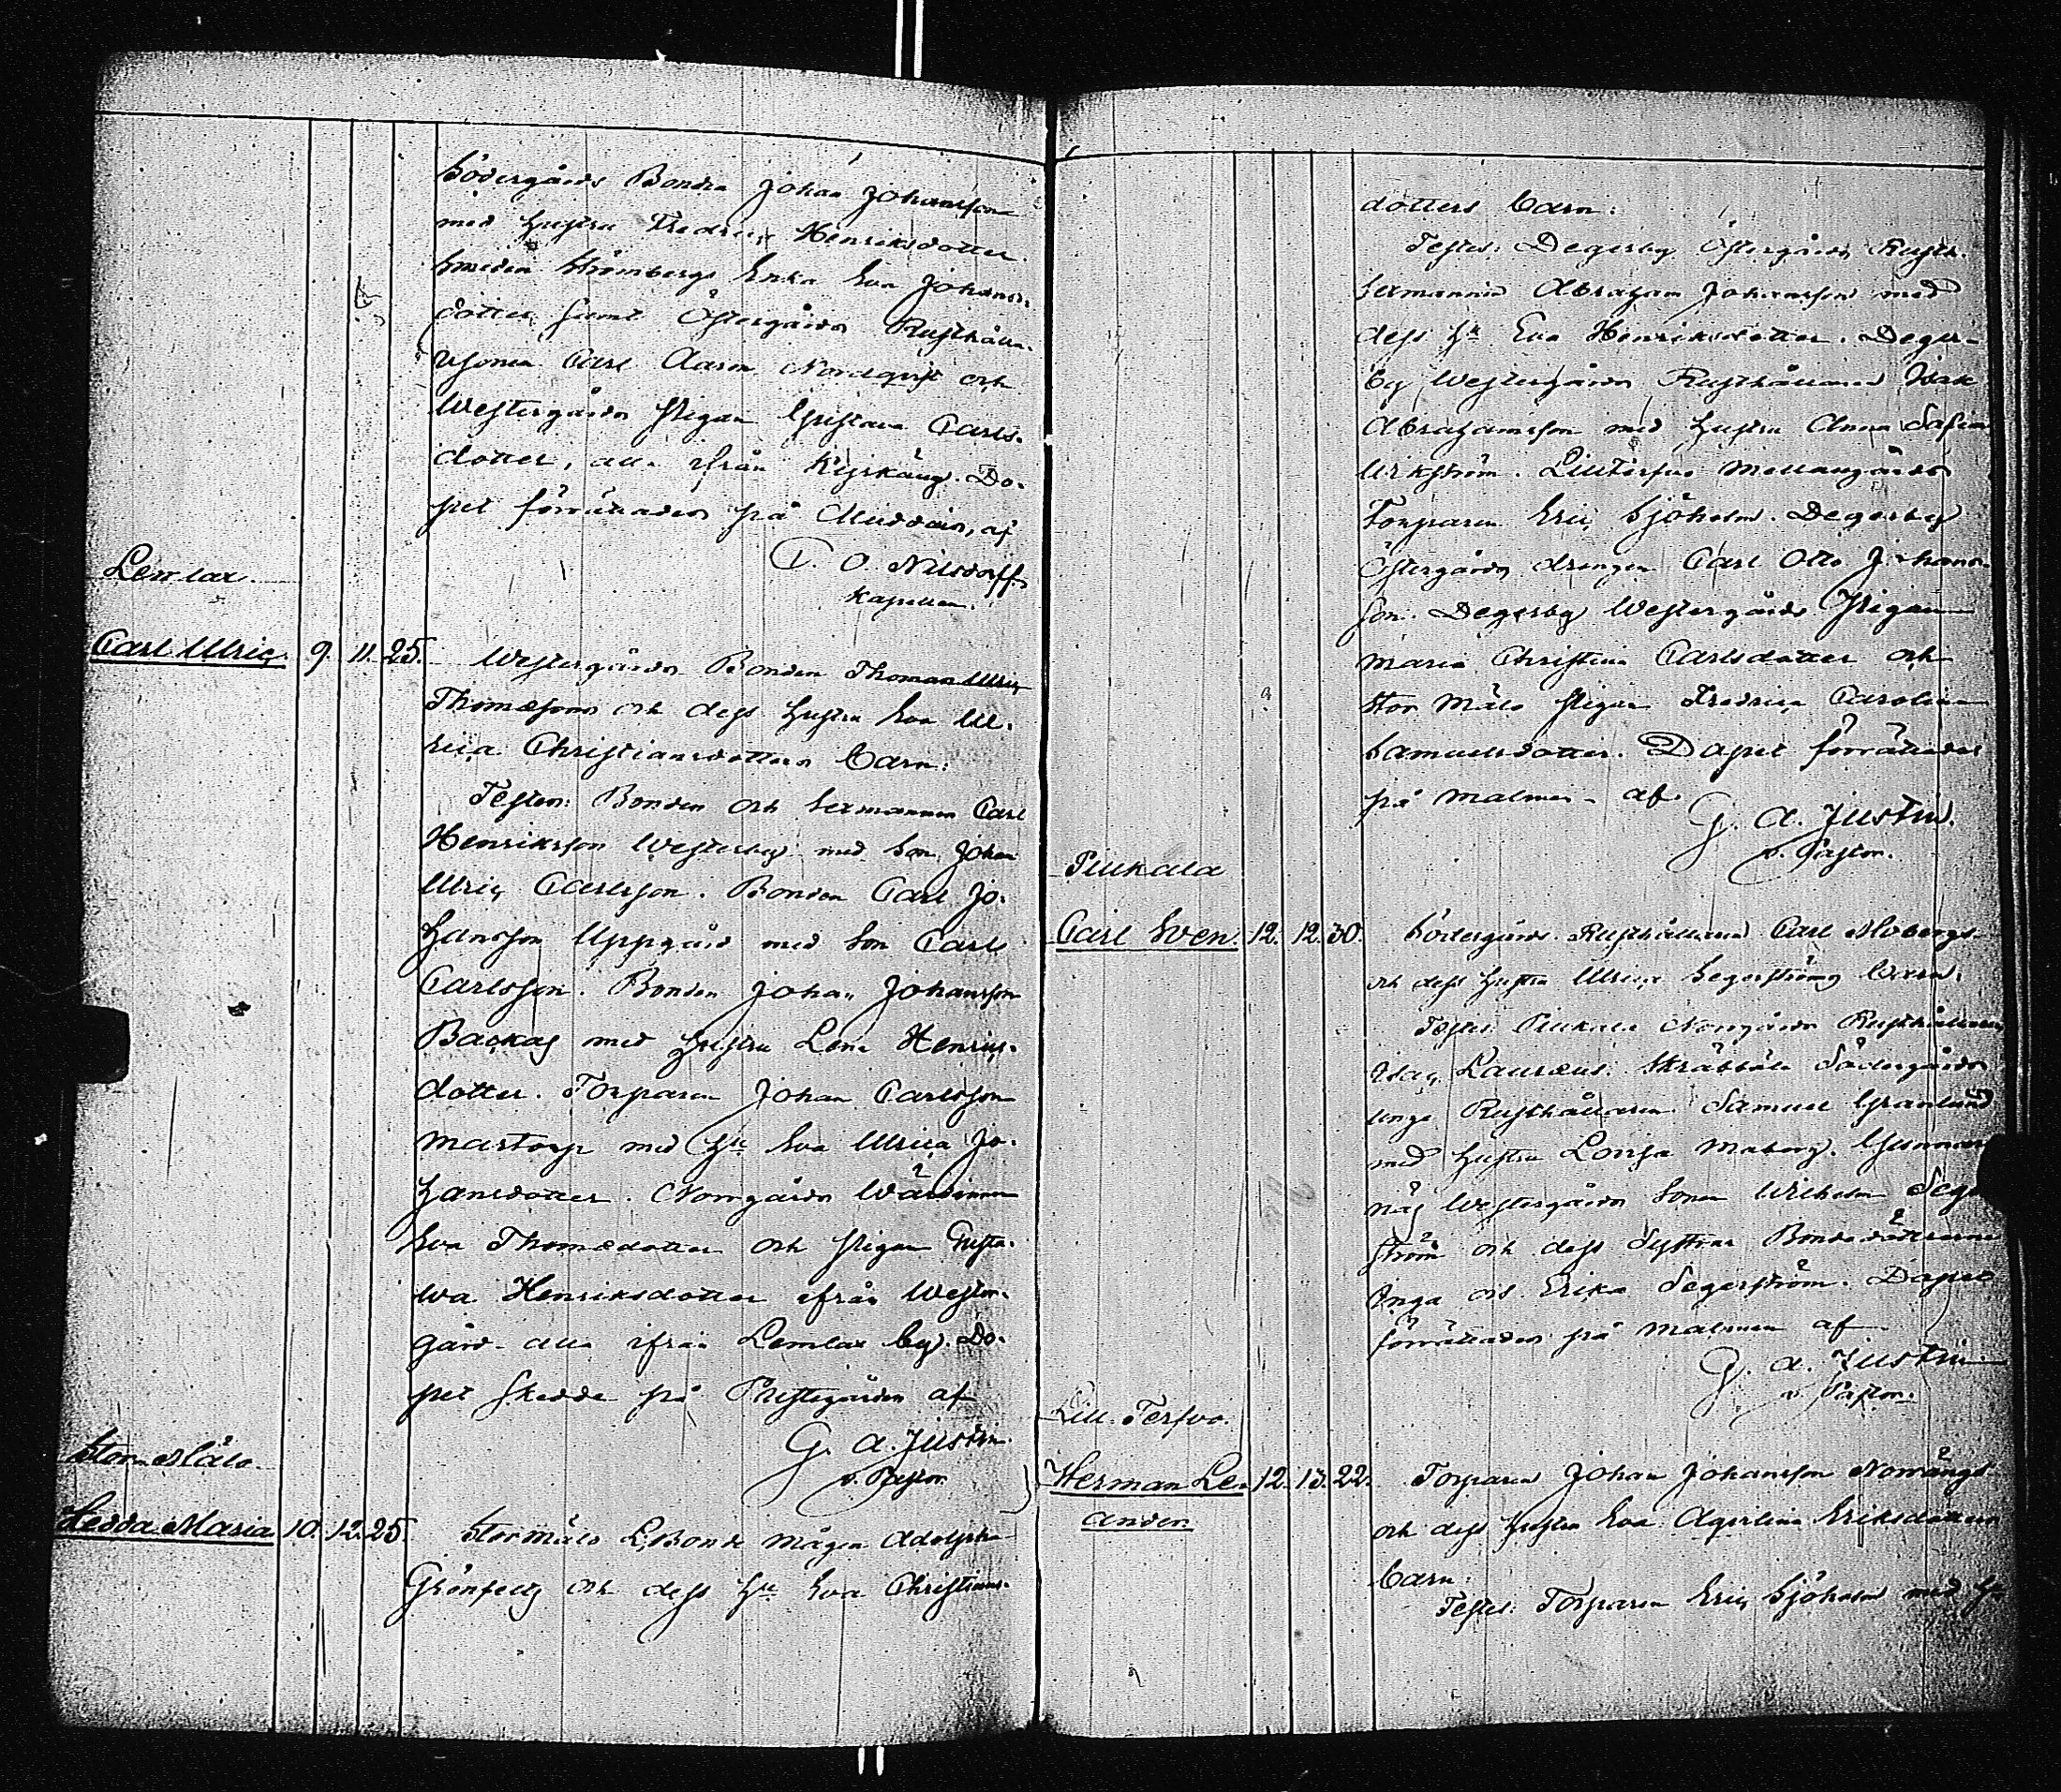 Södergårds Bonden Johan Johansson
med Hustru Fredrica Henriksdotter
Smeden Strömbergs Enka Eva Johans-
dotter samt Östergårds Rusthålla-
resonen Carl Aaron Nordqvist och
Westergårds Pigan Gustava Carls-
dotter, alla ifrån Kyrkäng. Do-
pet förrättades på Muddais, af
C. O. Nilsdorff
Kapellan.
Lemlax.
Carl Ulric. 9. 11. 25. Westergårds Bonden Thomas Ulric
Thomæsons och dess Hustru Eva Ul-
rica Christiansdotters Barn:
Testes: Bonden och Sexmannen Carl
Henriksson Westerby med Son Johan
Ulric Carlsson. Bonden Carl Jo-
hansson Uppgård med Son Carl
Carlsson. Bonden Johan Johansson
Backas med Hustru Lena Henrics-
dotter. Torparen Johan Carlsson
Martorp med Hu Eva Ulrica Jo-
hansdotter. Norrgårds Wärdinnan
Eva Thomædotter och Pigan Gusta-
va Henriksdotter ifrån Wester-
gård alla ifrån Lemlax by. Do-
pet skedde på Prestegården af
G. A. Justin.
v. Pastor.
Stor Mälo
Hedda Maria 10. 12. 25. Stormälo Bonde Mågen Adolph
Grönfelts och dess Hu Eva Christians-
dotters Barn:
Testes: Degerby Östergårds Rusth.
Sexmannen Abraham Johansson med
dess Hu Eva Henriksdotter. Deger-
by Westergårds Rusthållaren Isak
Abrahamsson med Hustru Anna Sofia
Wikström. Lilltersvo Mellangårds
Torparen Eric Sjöholm. Degerby
Östergårds drengen Carl Otto Johans-
son. Degerby Westergårds Pigan
Maria Christina Carlsdotter och
Stor Mälo Pigan Fredrica Carolina
Samuelsdotter. Dopet förrättades
på Malmen af
G. A. Justin.
v. Pastor.
Piukala
Carl Sven. 12. 12. 30. Södergårds Rusthållaren Carl Mobergs
och dess Hustru Ulrica Segerströms Barn:
Testes: Piukala Norrgårds Rusthållaren
Isac Lauræus. Skräbböle Södergårds
unga Rusthållaren Samuel Granlund
med Hustru Lovisa Moberg. Gunnar
näs Westergårds Sonen Wilhelm Seger
ström och dess Systrar Bondedöttrarne
Inga och Erika Segerström. Dopet
förrättades på Malmen af
G. A. Justin
v. Pastor.
Lill Tersvo.
Herman Le- 12. 13. 22. Torparen Johan Johansson Norrängs
ander. och dess Hustru Eva Agvelina Eriksdotters
Barn:
Testes: Torparen Eric Sjöholm med Hu